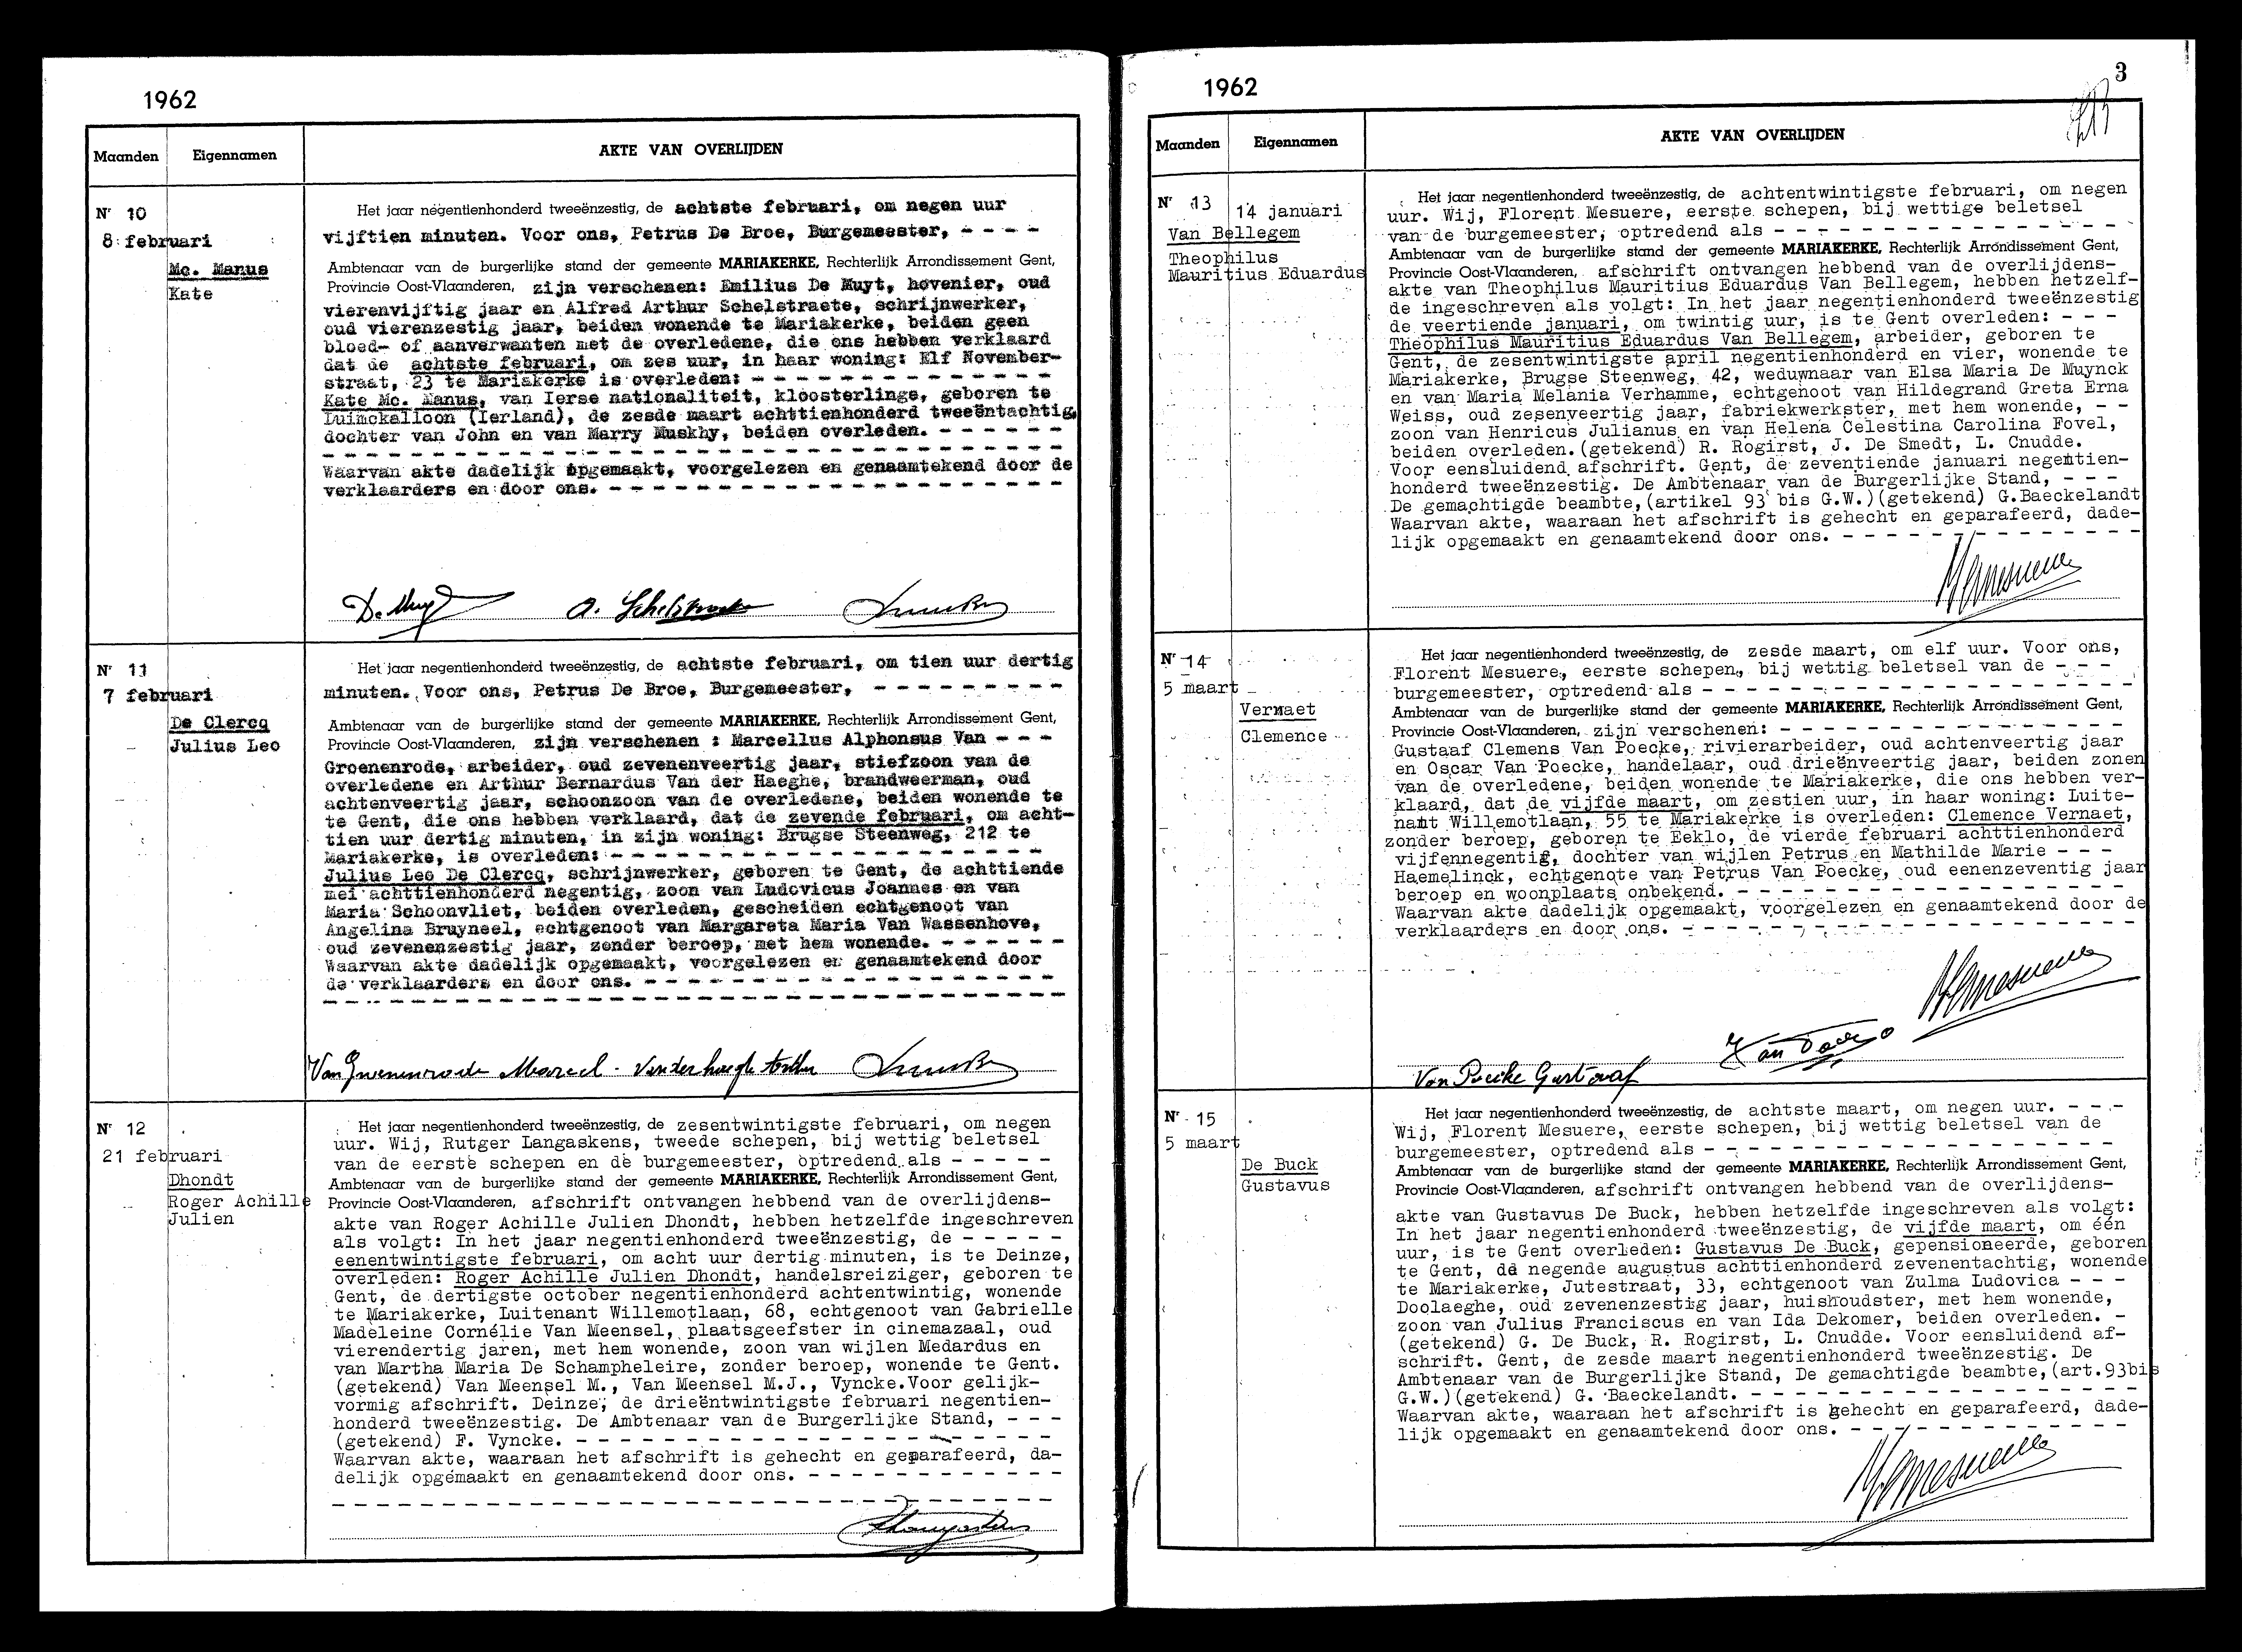 1962
Maanden Eigennamen AKTE VAN OVERLIJDEN
Nr 10
8 februari
Mc. Manus
Kate
Het jaar negentienhonderd tweeënzestig, de achtste februari, om negen uur
vijftien minuten. Voor ons, Petrus De Broe, Burgemeester, - - - -
Ambtenaar van de burgerlijke stand der gemeente MARIAKERKE, Rechterlijk Arrondissement Gent,
Provincie Oost-Vlaanderen, zijn verschenen: Emilius De Muyt, hovenier, oud
vierenvijftig jaar en Alfred Arthur Schelstraete, schrijnwerker,
oud vierenzestig jaar, beiden wonende te Mariakerke, beiden geen
bloed- of aanverwanten met de overledene, die ons hebben verklaard
dat de achtste februari, om zes uur, in haar woning: Elf November-
straat, 23 te Mariakerke is overleden: - - - - - - - - - - - - -
Kate Mc. Manus, van Ierse nationaliteit, kloosterlinge, geboren te
Luimckalloon (Ierland), de zesde maart achttienhonderd tweeëntachtig,
dochter van John en van Marry Muskhy, beiden overleden. - - - - - -
Waarvan akte dadelijk opgemaakt, voorgelezen en genaamtekend door de
verklaarders en door ons. - - - - - - - - - - - - - - - - - - - -
De Muyt A. Schelstraete
Nr 11
7 februari
De Clercq
Julius Leo
Het jaar negentienhonderd tweeënzestig, de achtste februari, om tien uur dertig
minuten. Voor ons, Petrus De Broe, Burgemeester, - - - - - - - - -
Ambtenaar van de burgerlijke stand der gemeente MARIAKERKE, Rechterlijk Arrondissement Gent,
Provincie Oost-Vlaanderen, zijn verschenen : Marcellus Alphonsus Van - - -
Groenenrode, arbeider, oud zevenenveertig jaar, stiefzoon van de
overledene en Arthur Bernardus Van der Haeghe, brandweerman, oud
achtenveertig jaar, schoonzoon van de overledene, beiden wonende te
te Gent, die ons hebben verklaard, dat de zevende februari, om acht-
tien uur dertig minuten, in zijn woning: Brugse Steenweg, 212 te
Mariakerke, is overleden: - - - - - - - - - - - - - - - - - - -
Julius Leo De Clercq, schrijnwerker, geboren te Gent, de achttiende
mei achttienhonderd negentig, zoon van Ludovicus Joannes en van
Maria Schoonvliet, beiden overleden, gescheiden echtgenoot van
Angelina Bruyneel, echtgenoot van Margareta Maria Van Wassenhove,
oud zevenenzestig jaar, zonder beroep, met hem wonende. - - - - - -
Waarvan akte dadelijk opgemaakt, voorgelezen en genaamtekend door
de verklaarders en door ons. - - - - - - - - - - - - - - - - - -
Van Groenenrode Marcel - Vanderhaeghe Arthur
Nr 12
21 februari
Dhondt
Roger Achille
Julien
Het jaar negentienhonderd tweeënzestig, de zesentwintigste februari, om negen
uur. Wij, Rutger Langaskens, tweede schepen, bij wettig beletsel
van de eerste schepen en de burgemeester, optredend als - - - - -
Ambtenaar van de burgerlijke stand der gemeente MARIAKERKE, Rechterlijk Arrondissement Gent,
Provincie Oost-Vlaanderen, afschrift ontvangen hebbend van de overlijdens-
akte van Roger Achille Julien Dhondt, hebben hetzelfde ingeschreven
als volgt: In het jaar negentienhonderd tweeënzestig, de - - - - -
eenentwintigste februari, om acht uur dertig minuten, is te Deinze,
overleden: Roger Achille Julien Dhondt, handelsreiziger, geboren te
Gent, de dertigste october negentienhonderd achtentwintig, wonende
te Mariakerke, Luitenant Willemotlaan, 68, echtgenoot van Gabrielle
Madeleine Cornélie Van Meensel, plaatsgeefster in cinemazaal, oud
vierendertig jaren, met hem wonende, zoon van wijlen Medardus en
van Martha Maria De Schampheleire, zonder beroep, wonende te Gent.
(getekend) Van Meensel M., Van Meensel M.J., Vyncke.Voor gelijk-
vormig afschrift. Deinze, de drieëntwintigste februari negentien-
honderd tweeënzestig. De Ambtenaar van de Burgerlijke Stand, - - -
(getekend) F. Vyncke. - - - - - - - - - - - - - - - - - - - - -
Waarvan akte, waaraan het afschrift is gehecht en geparafeerd, da-
delijk opgemaakt en genaamtekend door ons. - - - - - - - - - - - -
1962
3
Maanden Eigennamen AKTE VAN OVERLIJDEN
Nr 13
14 januari
Van Bellegem
Theophilus
Mauritius Eduardus
Het jaar negentienhonderd tweeënzestig, de achtentwintigste februari, om negen
uur. Wij, Florent Mesuere, eerste schepen, bij wettige beletsel
van de burgemeester, optredend als - - - - - - - - - - - - - - -
Ambtenaar van de burgerlijke stand der gemeente MARIAKERKE, Rechterlijk Arrondissement Gent,
Provincie Oost-Vlaanderen, afschrift ontvangen hebbend van de overlijdens-
akte van Theophilus Mauritius Eduardus Van Bellegem, hebben hetzelf-
de ingeschreven als volgt: In het jaar negentienhonderd tweeënzestig
de veertiende januari, om twintig uur, is te Gent overleden: - - -
Theophilus Mauritius Eduardus Van Bellegem, arbeider, geboren te
Gent, de zesentwintigste april negentienhonderd en vier, wonende te
Mariakerke, Brugse Steenweg, 42, weduwnaar van Elsa Maria De Muynck
en van Maria Melania Verhamme, echtgenoot van Hildegrand Greta Erna
Weiss, oud zesenveertig jaar, fabriekwerkster, met hem wonende, - -
zoon van Henricus Julianus en van Helena Celestina Carolina Fovel,
beiden overleden.(getekend) R. Rogirst, J. De Smedt, L. Cnudde.
Voor eensluidend afschrift. Gent, de zeventiende januari negentien-
honderd tweeënzestig. De Ambtenaar van de Burgerlijke Stand, - - -
De gemachtigde beambte,(artikel 93 bis G.W.)(getekend) G.Baeckelandt
Waarvan akte, waaraan het afschrift is gehecht en geparafeerd, dade-
lijk opgemaakt en genaamtekend door ons. - - - - - - - - - - - - -
Nr 14
5 maart
Vernaet
Clemence
Het jaar negentienhonderd tweeënzestig, de zesde maart, om elf uur. Voor ons,
Florent Mesuere, eerste schepen, bij wettig beletsel van de - - -
burgemeester, optredend als - - - - - - - - - - - - - - - - - - -
Ambtenaar van de burgerlijke stand der gemeente MARIAKERKE, Rechterlijk Arrondissement Gent,
Provincie Oost-Vlaanderen, zijn verschenen: - - - - - - - - - - - - - -
Gustaaf Clemens Van Poecke, rivierarbeider, oud achtenveertig jaar
en Oscar Van Poecke, handelaar, oud drieënveertig jaar, beiden zonen
van de overledene, beiden wonende te Mariakerke, die ons hebben ver-
klaard, dat de vijfde maart, om zestien uur, in haar woning: Luite-
nant Willemotlaan, 55 te Mariakerke is overleden: Clemence Vernaet,
zonder beroep, geboren te Eeklo, de vierde februari achttienhonderd
vijfennegentig, dochter van wijlen Petrus en Mathilde Marie - - -
Haemelinck, echtgenote van Petrus Van Poecke, oud eenenzeventig jaar
beroep en woonplaats onbekend. - - - - - - - - - - - - - - - - -
Waarvan akte dadelijk opgemaakt, voorgelezen en genaamtekend door de
verklaarders en door ons. - - - - - - - - - - - - - - - - - - - -
Van Poecke Gustaaf
Nr 15
5 maart
De Buck
Gustavus
Het jaar negentienhonderd tweeënzestig, de achtste maart, om negen uur. - - - -
Wij, Florent Mesuere, eerste schepen, bij wettig beletsel van de
burgemeester, optredend als - - - - - - - - - - - - - - - - - - -
Ambtenaar van de burgerlijke stand der gemeente MARIAKERKE, Rechterlijk Arrondissement Gent,
Provincie Oost-Vlaanderen, afschrift ontvangen hebbend van de overlijdens-
akte van Gustavus De Buck, hebben hetzelfde ingeschreven als volgt:
In het jaar negentienhonderd tweeënzestig, de vijfde maart, om één
uur, is te Gent overleden: Gustavus De Buck, gepensioneerde, geboren
te Gent, de negende augustus achttienhonderd zevenentachtig, wonende
te Mariakerke, Jutestraat, 33, echtgenoot van Zulma Ludovica - - -
Doolaeghe, oud zevenenzestig jaar, huishoudster, met hem wonende,
zoon van Julius Franciscus en van Ida Dekomer, beiden overleden. -
(getekend) G. De Buck, R. Rogirst, L. Cnudde. Voor eensluidend af-
schrift. Gent, de zesde maart negentienhonderd tweeënzestig. De
Ambtenaar van de Burgerlijke Stand, De gemachtigde beambte,(art.93bis
G.W.)(getekend) G. Baeckelandt. - - - - - - - - - - - - - - - - -
Waarvan akte, waaraan het afschrift is gehecht en geparafeerd, dade-
lijk opgemaakt en genaamtekend door ons. - - - - - - - - - - - - -